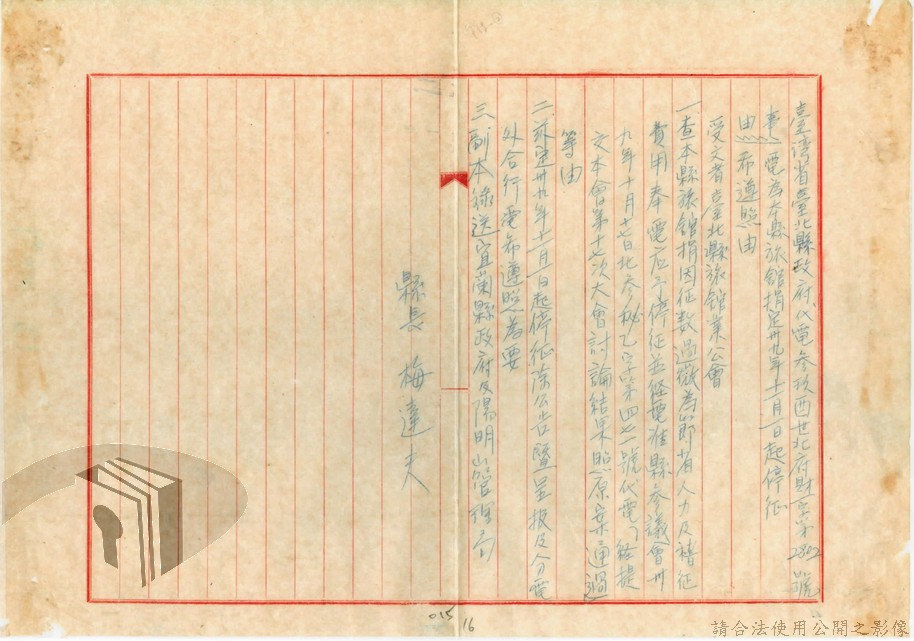 臺灣省臺北縣政府代電 參玖酉世北府財字第2802號
事 電為本縣旅館捐定卅九年十一月一日起停征
由 希遵照由
受文者臺北縣旅館業公會
一查本縣旅館捐因征数過微為節省人力及稽征
費用奉電应予停征並経電准縣參議會卅
九年十月十七日北參秘乙字第四七一號代電「経提
交本會第十七次大會討論結果照原案通過」
等由
二茲定卅九年十一月一日起停征除公告暨呈报及分電
外合行電希遵照為要
三副本錄送宜蘭縣政府及陽明山管理局
縣長 梅達夫
015
16
請合法使用公開之影像